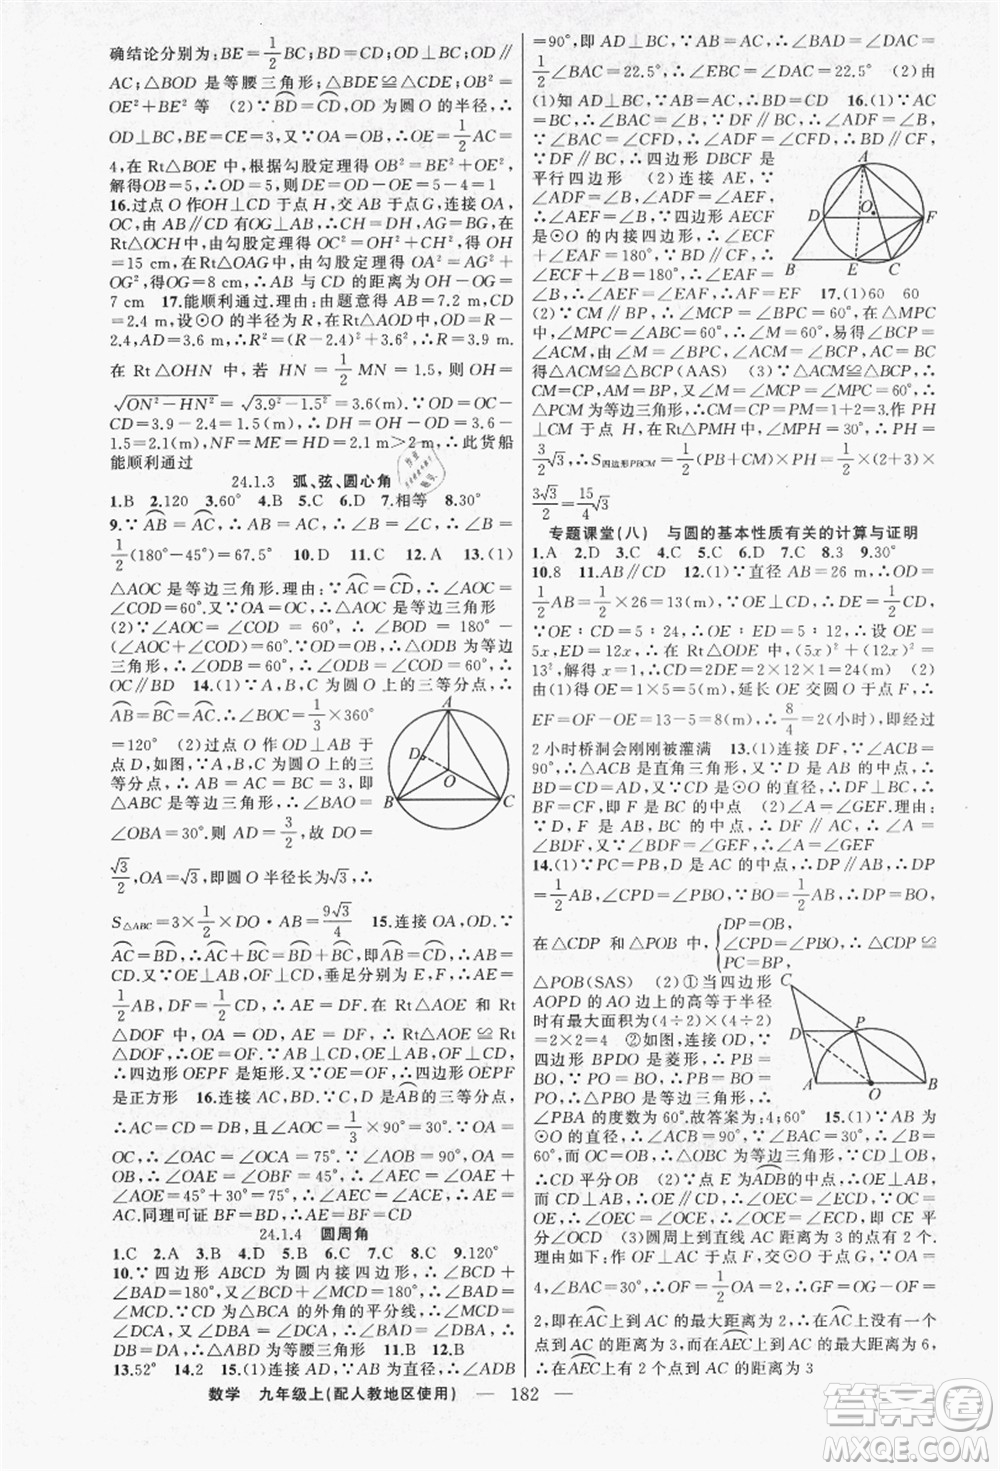 确结论分别为:BE=1/2BC;BD=CD;OD⊥BC;OD∥
AC;△BOD 是等腰三角形;△BDE≌△CDE;OB²=
OE²+BE²等 (2)∵BD=CD,OD 为圆 O 的半径,∴
OD⊥BC,∴BE=CE=3,又∵OA=OB,∴OE=1/2AC=
4,在 Rt△BOE 中,根据勾股定理得 OB²=BE²+OE²,
解得OB=5,∴OD=5,则 DE=OD-OE=5-4=1
16.过点 O 作OH⊥CD 于点 H,交 AB 于点G,连接OA,
OC,∵AB∥CD,∴OH⊥AB,∴CH=DH,AG=BG,在
Rt△OCH 中,由勾股定理得 OC²=CH²+OH²,得 OH=
15 cm,在Rt△OAG中,由勾股定理得OA²=AG²+
OG²,得OG=8 cm,∴AB 与 CD 的距离为OH-OG=
7 cm 17.能顺利通过.理由:由题意得 AB=7.2 m,CD
=2.4 m,设⊙O 的半径为R,在Rt△AOD中,OD=R-
2.4,AD=3.6 m,∴R²=(R-2.4)²+3.6²,∴R=3.9 m.
在 Rt△OHN 中,若 HN=1/2MN=1.5,则OH=
√ON²-HN²=√3.9²-1.5²=3.6(m),∵OD=OC-
CD=3.9-2.4=1.5(m),∴DH=OH-OD=3.6-
1.5=2.1(m),NF=ME=HD=2.1 m>2 m,∴此货船
能顺利通过
24.1.3 弧、弦、圆心角
1.B 2.120 3.60° 4.B 5.B 6.D 7.相等 8.30°
9.∵AB=AC,∴AB=AC,∴∠B=∠C,∴∠B=∠C=
1/2(180°-45°)=67.5° 10.D 11.C 12.A 13.(1)
△AOC 是等边三角形.证明:∵AC=CD,∴∠AOC=
∠COD=60°.又∵OA=OC,∴△AOC 是等边三角形
(2)∵∠AOC=∠COD=60°,∴∠BOD=180°-
(∠AOC+∠COD)=60°.∵OD=OB,∴△ODB 为等边
三角形,∴∠ODB=60°,∴∠ODB=∠COD=60°,∴
OC∥BD 14.(1)∵A,B,C 为圆 O 上的三等分点,∴
AB=BC=AC.∴∠BOC=1/3×360°
=120° (2)过点 O 作 OD⊥AB 于
点 D,∵A,B,C 为圆 O 上的三等
分点,∴AB=AC=BC=3,即
△ABC 是等边三角形,∴∠BAO=
∠OBA=30°.则 AD=3/2,故 DO=
√3/2,OA=√3,即圆 O 半径长为√3,∴
S△ABC=3×1/2×DO·AB=9√3/4 15.连接 OA,OD.∵
AB=CD,∴AC+BC=BD+BC,即AC=BD,∴AB=
CD,∵OE⊥AB,OF⊥CD,垂足分别为 E,F,∴AE=
1/2AB,DF=1/2CD,∴AE=DF.在 Rt△AOE 和 Rt
△DOF 中,OA=OD,AE=DF,∴Rt△AOE≌Rt
△DOF,∴OE=OF.又∵OE⊥AB,OF⊥CD,AB⊥CD,∴
四边形 OEPF 是矩形.又∵OE=OF,∴四边形 OEPF
是正方形 16.连接 AC,∵C,D 是AB的三等分点,
∴AC=CD=DB,且∠AOC=1/3×90°=30°.∵OA=
OC,∴∠OAC=∠OCA=75°.又∵OA=OB,∠AOB=
90°,∴∠OAB=∠OBA=45°,∴∠AEC=∠OAE+
∠AOE=45°+30°=75°,∴∠AEC=∠OCA,∴AE=
AC.同理可证 BF=BD,∴AE=BF=CD
24.1.4 圆周角
1.C 2.A 3.B 4.D 5.A 6.C 7.C 8.C 9.120°
10.∵四边形 ABCD 为圆内接四边形,∴∠BCD+
∠BAD=180°,又∠BCD+∠MCD=180°,∴∠BAD=
∠MCD.∵CD 为∠BCA 的外角的平分线,∴∠MCD=
∠ACD,又∵∠ACD=∠DBA,∴∠DAB=∠DBA,∴
DB=DA,∴△DAB 为等腰三角形 11.B 12.B
13.52° 14.2 15.(1)连接 AD,∵AB 为直径,∴∠ADB
=90°,即 AD⊥BC,∵AB=AC,∴∠CAD=∠BAD=
1/2∠BAC=22.5°,∴∠EBC=∠DAC=22.5° (2)由
(1)知 AD⊥BC,又∵AB=AC,∴BD=CD 16.(1)∵AC
=BC,∴∠BAC=∠B,∵DF∥BC,∴∠ADF=∠B,又
∵∠BAC=∠CFD,∴∠ADF=∠CFD,∴BD∥CF,
∵DF∥BC,∴四边形 DBCF 是
平行四边形 (2)连接 AE,∵
∠ADF=∠B,∠ADF=∠AEF,
∴∠AEF=∠B,∵四边形 AECF
是⊙O 的内接四边形,∴∠ECF
+∠EAF=180°,∵BD∥CF,∴
∠ECF+∠B=180°,∴∠EAF=
∠B,∴∠AEF=∠EAF,∴AF=EF 17.(1)60 60
(2)∵CM∥BP,∴∠M+∠MPB=180°,在△MPC
中,∠MPC=∠ABC=60°,∴∠M=60°,易得∠BPC=
60°,∴∠M=∠BPC,又∵∠MAC=∠PBC,AC=BC,
得△ACM≌△BCP(AAS) (3)∵△ACM≌△BCP,∴
CM=CP,AM=BP,又∠M=∠MPC=∠MCP=60°,∴
△PCM 为等边三角形,∴CM=CP=PM=1+2=3.作 PH
⊥CM 于点 H,在 Rt△PMH 中,∠MPH=30°,∴PH=
3/2√3,∴S四边形PBCM=1/2(PB+CM)×PH=1/2(2+3)×
3√3/2=15/4√3
专题课堂(八) 与圆的基本性质有关的计算与证明
1.A 2.D 3.C 4.C 5.C 6.D 7.C 8.3 9.30°
10.8 11.AB∥CD 12.(1)∵直径 AB=26 m,∴OD=
1/2AB=1/2×26=13(m),∵OE⊥CD,∴DE=1/2CD,
∵OE:CD=5:24,∴OE:ED=5:12,∴设 OE=
5x,ED=12x,∴在 Rt△ODE 中,(5x)²+(12x)²=
13²,解得 x=1,∴CD=2DE=2×12×1=24(m) (2)
由(1)得 OE=1×5=5(m),延长 OE 交圆 O 于点F,∴
EF=OF-OE=13-5=8(m),∴8/4=2(小时),即经过
2 小时桥洞会刚刚被灌满 13.(1)连接 DF,∵∠ACB=
90°,∴△ABC 是直角三角形,∵D 是 AB 的中点,∴
BD=CD=AD,又∵DC 是⊙O 的直径,∴DF⊥BC,∴
BF=CF,即 F 是 BC 的中点 (2)∠A=∠GEF.理由:
∵D,F 是 AB,BC 的中点,∴DF∥AC,∴∠A=
∠BDF,又∵∠BDF=∠GEF,∴∠A=∠GEF
14.(1)∵PC=PB,D 是 AC 的中点,∴DP∥AB,∴DP
=1/2AB,∠CPD=∠PBO,∵BO=1/2AB,∴DP=BO,
在△CDP 和△POB 中,{DP=OB,
∠CPD=∠PBO,∴△CDP≌
PC=BP,
△POB(SAS) (2)①当四边形
AOPD 的 AO 边上的高等于半径
时有最大面积为(4÷2)×(4÷2)
=2×2=4 ②如图,连接 OD,∵
四边形 BPDO 是菱形,∴PB=
BO,∵PO=BO,∴PB=BO=
PO,∴△PBO是等边三角形,∴
∠PBA 的度数为 60°.故答案为:4;60° 15.(1)∵AB 为
⊙O 的直径,∴∠ACB=90°,∵∠BAC=30°,∴∠B=
60°,而OC=OB,∴△OBC 为等边三角形,∵CD⊥OB,
∴CD 平分 OB (2)∵点E为ADB的中点,∴OE⊥AB,
而 CD⊥AB,∴OE∥CD,∴∠OEC=∠ECD,∵OC=
OE,∴∠OEC=∠OCE,∴∠OCE=∠DCE,即 CE 平
分∠OCD (3)圆周上到直线 AC 距离为 3 的点有 2 个,
理由如下:作 OF⊥AC 于点F,交⊙O于点G,∵OA=
4,∠BAC=30°,∴OF=1/2OA=2,∴GF=OG-OF=
2,即在AC上的点到 AC 的最大距离为 2,∴在AC没有一个
点到 AC 的距离为 3,而在AEC上的点到 AC 的最大距离为 6,
∴在AEC上有 2 个点到 AC 的距离为 3
A
D
O
B
C
A
D
O
F
B
E
C
C
D
P
A
O
B
数学 九年级上(配人教地区使用) — 182 —
答案圈
MXQE.COM